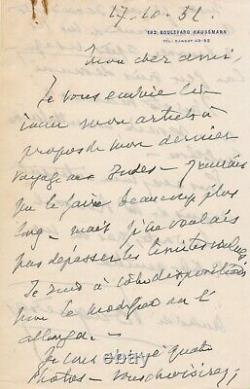 17-10-32.
182, BOULEVARD HAUSSMANN
Mon cher ami,
Je vous envoie ci-
mon article à
propos de mon dernier
voyage aux Indes - J'aurais
pu le faire beaucoup plus
long - mais je ne voulais
pas dépasser les limites
Je suis à votre disposition
pour le modifier ou l'
allonger -
Je vous ai quatre
photos - vous choisirez